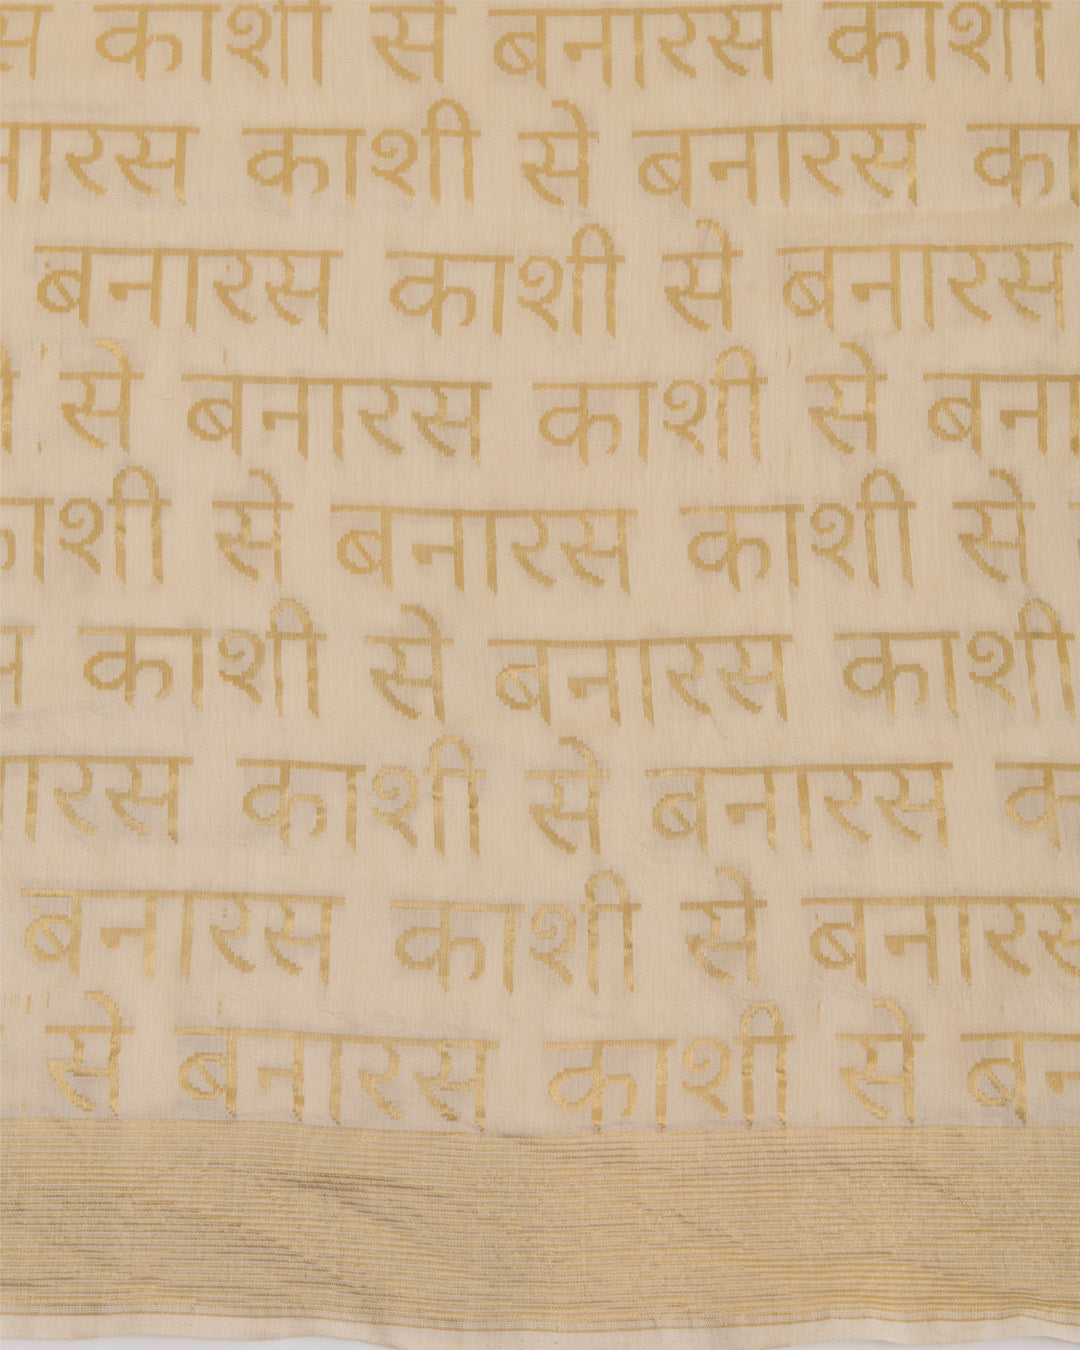 काशी से बनारस काशी
काशी से बनारस
बनारस काशी से बनारस
से बनारस काशी से
से बनारस काशी से
काशी से बनारस काशी
काशी से बनारस
बनारस काशी से बनारस
से बनारस काशी से